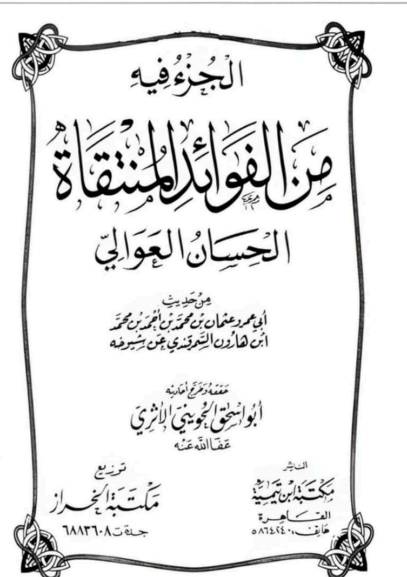 الجزء فيه
من الفوائد المنتقاة
الحسان العوالي
من حديث
أبي عمرو عثمان بن محمد بن أحمد بن محمد
ابن هارون السمرقندي عن شيوخه
حققه وخرج أحاديثه
أبو إسحق الحويني الأثري
عفا الله عنه
الناشر
مكتبة ابن تيمية
القاهرة
هاتف: ٥٨٦٤٢٤٠
توزيع
مكتبة الخراز
جدة ت ٦٨٨٣٦٠٨